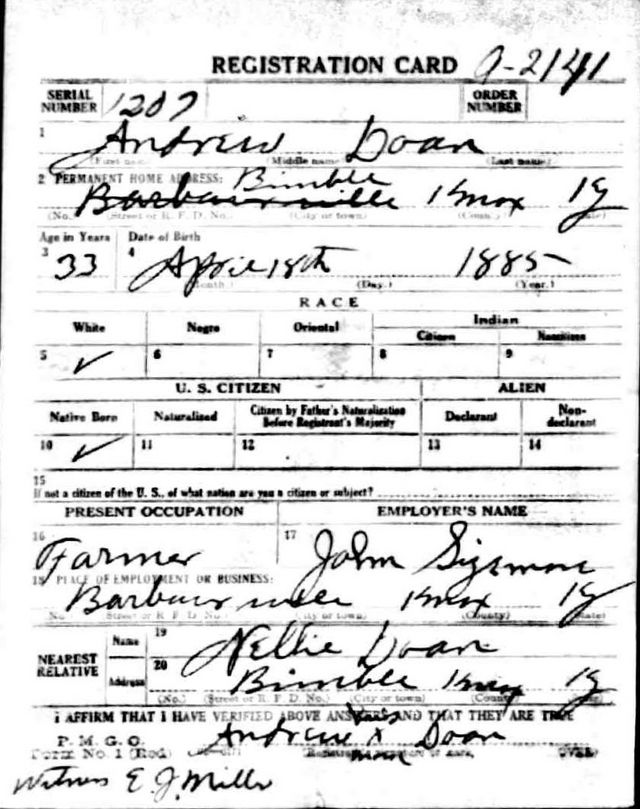 REGISTRATION CARD A-2141
SERIAL NUMBER 1207 ORDER NUMBER
1 Andrew Doan
(First name) (Middle name) (Last name)
2 PERMANENT HOME ADDRESS: Bimble
Barbourville Knox Ky
(No.) (Street or R. F. D. No.) (City or town) (County) (State)
Age in Years Date of Birth
3 33 4 April 18th 1885
(Month.) (Day.) (Year.)
RACE
White Negro Oriental Indian
Citizen Noncitizen
5 ✓ 6 7 8 9
U. S. CITIZEN ALIEN
Native Born Naturalized Citizen by Father's Naturalization Before Registrant's Majority Declarant Non-declarant
10 ✓ 11 12 13 14
15
If not a citizen of the U. S., of what nation are you a citizen or subject?
PRESENT OCCUPATION EMPLOYER'S NAME
16 Farmer 17 John
18 PLACE OF EMPLOYMENT OR BUSINESS:
Barbourville Knox Ky
(No.) (Street or R. F. D. No.) (City or town) (County) (State)
NEAREST RELATIVE Name 19 Nellie Doan
Address 20 Bimble Knox Ky
(No.) (Street or R. F. D. No.) (City or town) (County) (State)
I AFFIRM THAT I HAVE VERIFIED ABOVE ANSWERS AND THAT THEY ARE TRUE
P. M. G. O.
Form No. 1 (Red) Andrew X Doan
(Registrant's signature or mark) (OVER)
Witness E. J. Mills